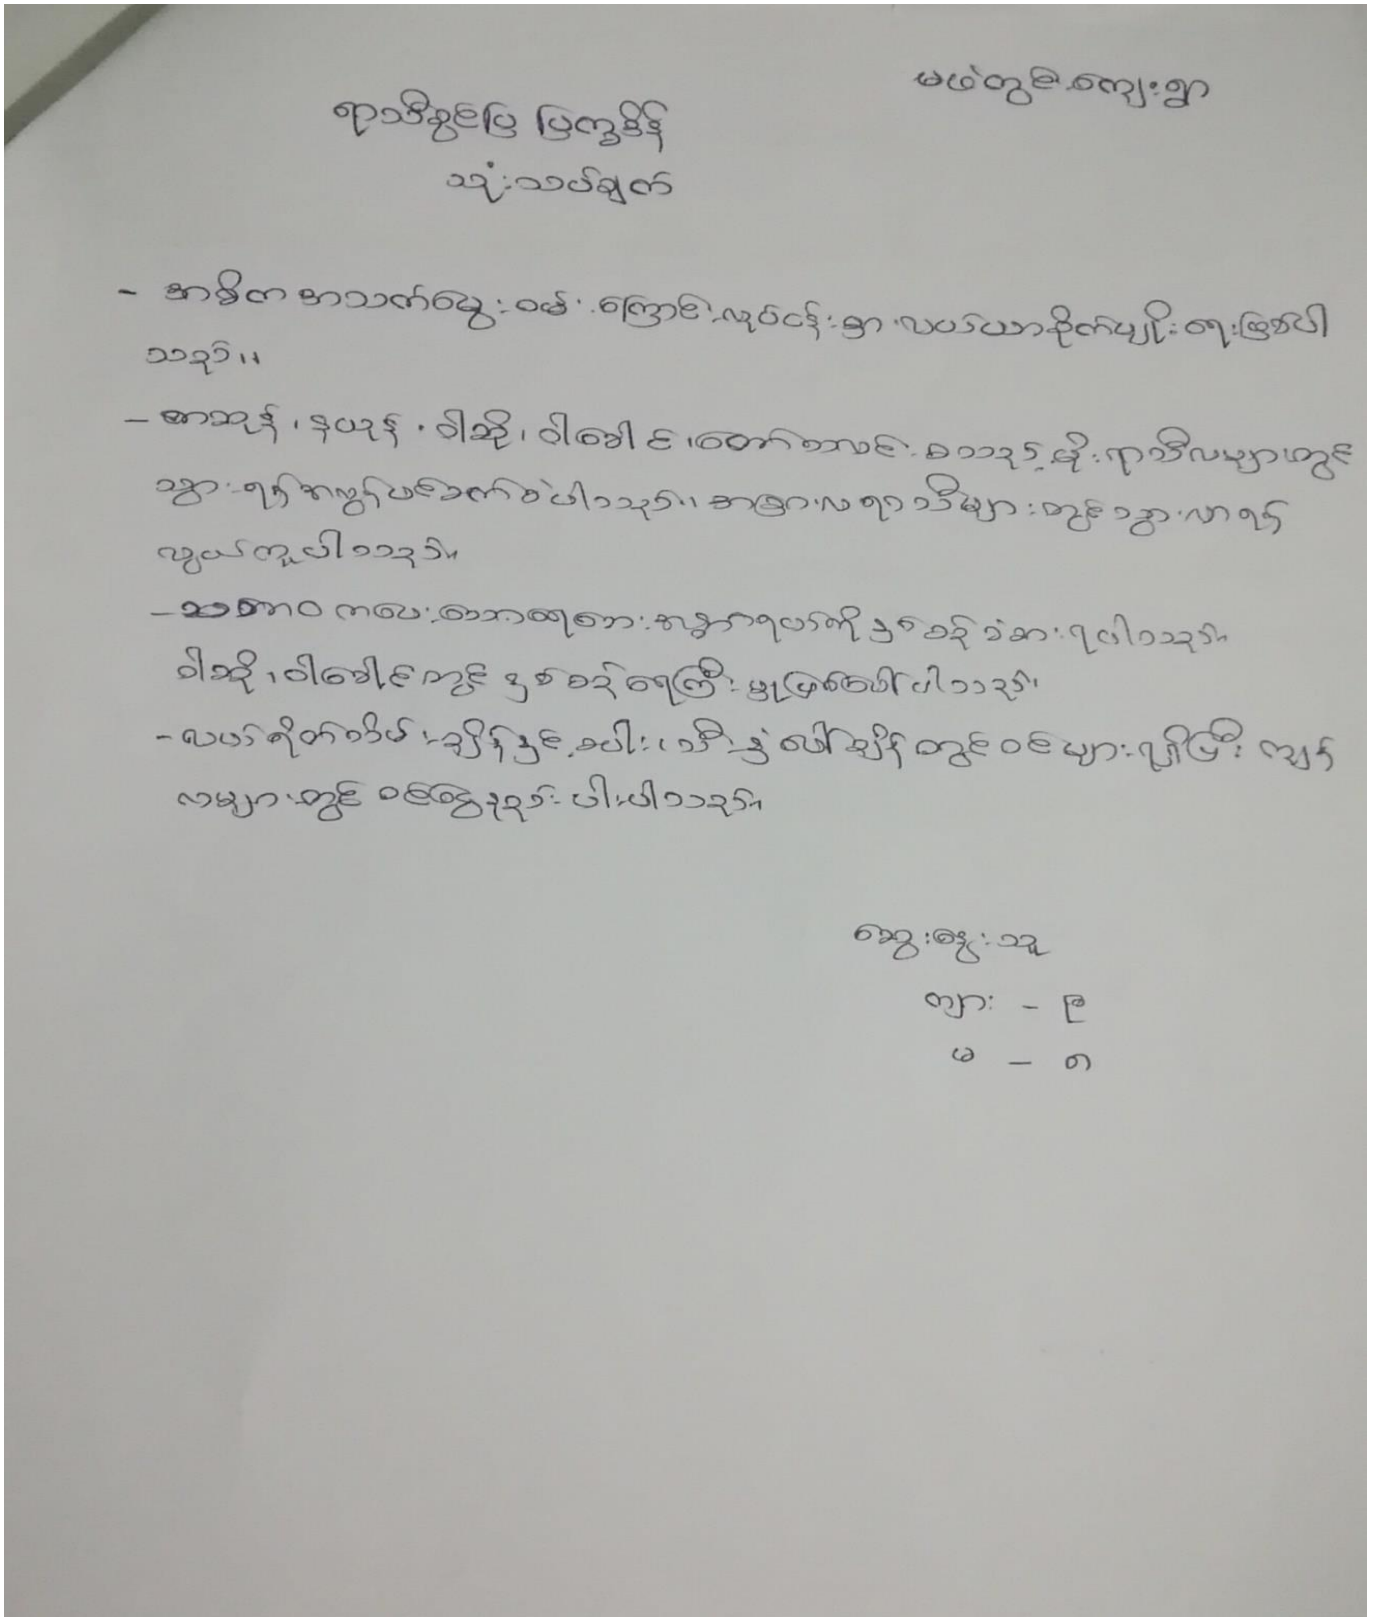 မယ်တွင်းကျေးရွာ
ရာသီခွင်ပြ ပြက္ခဒိန်
သုံးသပ်ချက်
- အဓိက အသက်မွေး ဝမ်းကြောင်းလုပ်ငန်းမှာ လယ်ယာစိုက်ပျိုးရေးဖြစ်ပါ
သည်။
- ကဆုန်၊ နယုန်၊ ဝါဆို၊ ဝါခေါင်၊ တော်သလင်း စသည့် မိုးရာသီလများတွင်
သွားရန်အလွန်ပင်ခက်ခဲပါသည်။ အခြားလရာသီများတွင် သွားလာရန်
လွယ်ကူပါသည်။
- သဘာဝ ကပ်ဘေး အန္တရာယ်ကို နှစ်စဉ်ခံစားရပါသည်။
ဝါဆို၊ ဝါခေါင်တွင် နှစ်စဉ်ရေကြီးမှုဖြစ်ပေါ်ပါသည်။
- လယ်ရိတ်သိမ်းချိန်နှင့် စပါး၊ သီးနှံပေါ်ချိန်တွင်ဝင်ငွေများရရှိပြီး ကျန်
လများတွင် ဝင်ငွေနည်းပါးပါသည်။
ဆွေးနွေးသူ
ကျား - ၉
မ - ၈